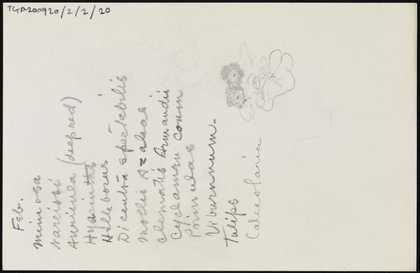 TGA200920/2/2/20
Feb.
Mimosa
Narcissi
Auricula (deep red)
Hyacinths
Helleborus
Dicentra spectabilis
Mollis Azaleas
Clematis Armandii
Cyclamen coum
Primulas
Viburnnum.
Tulips
Calceolaria